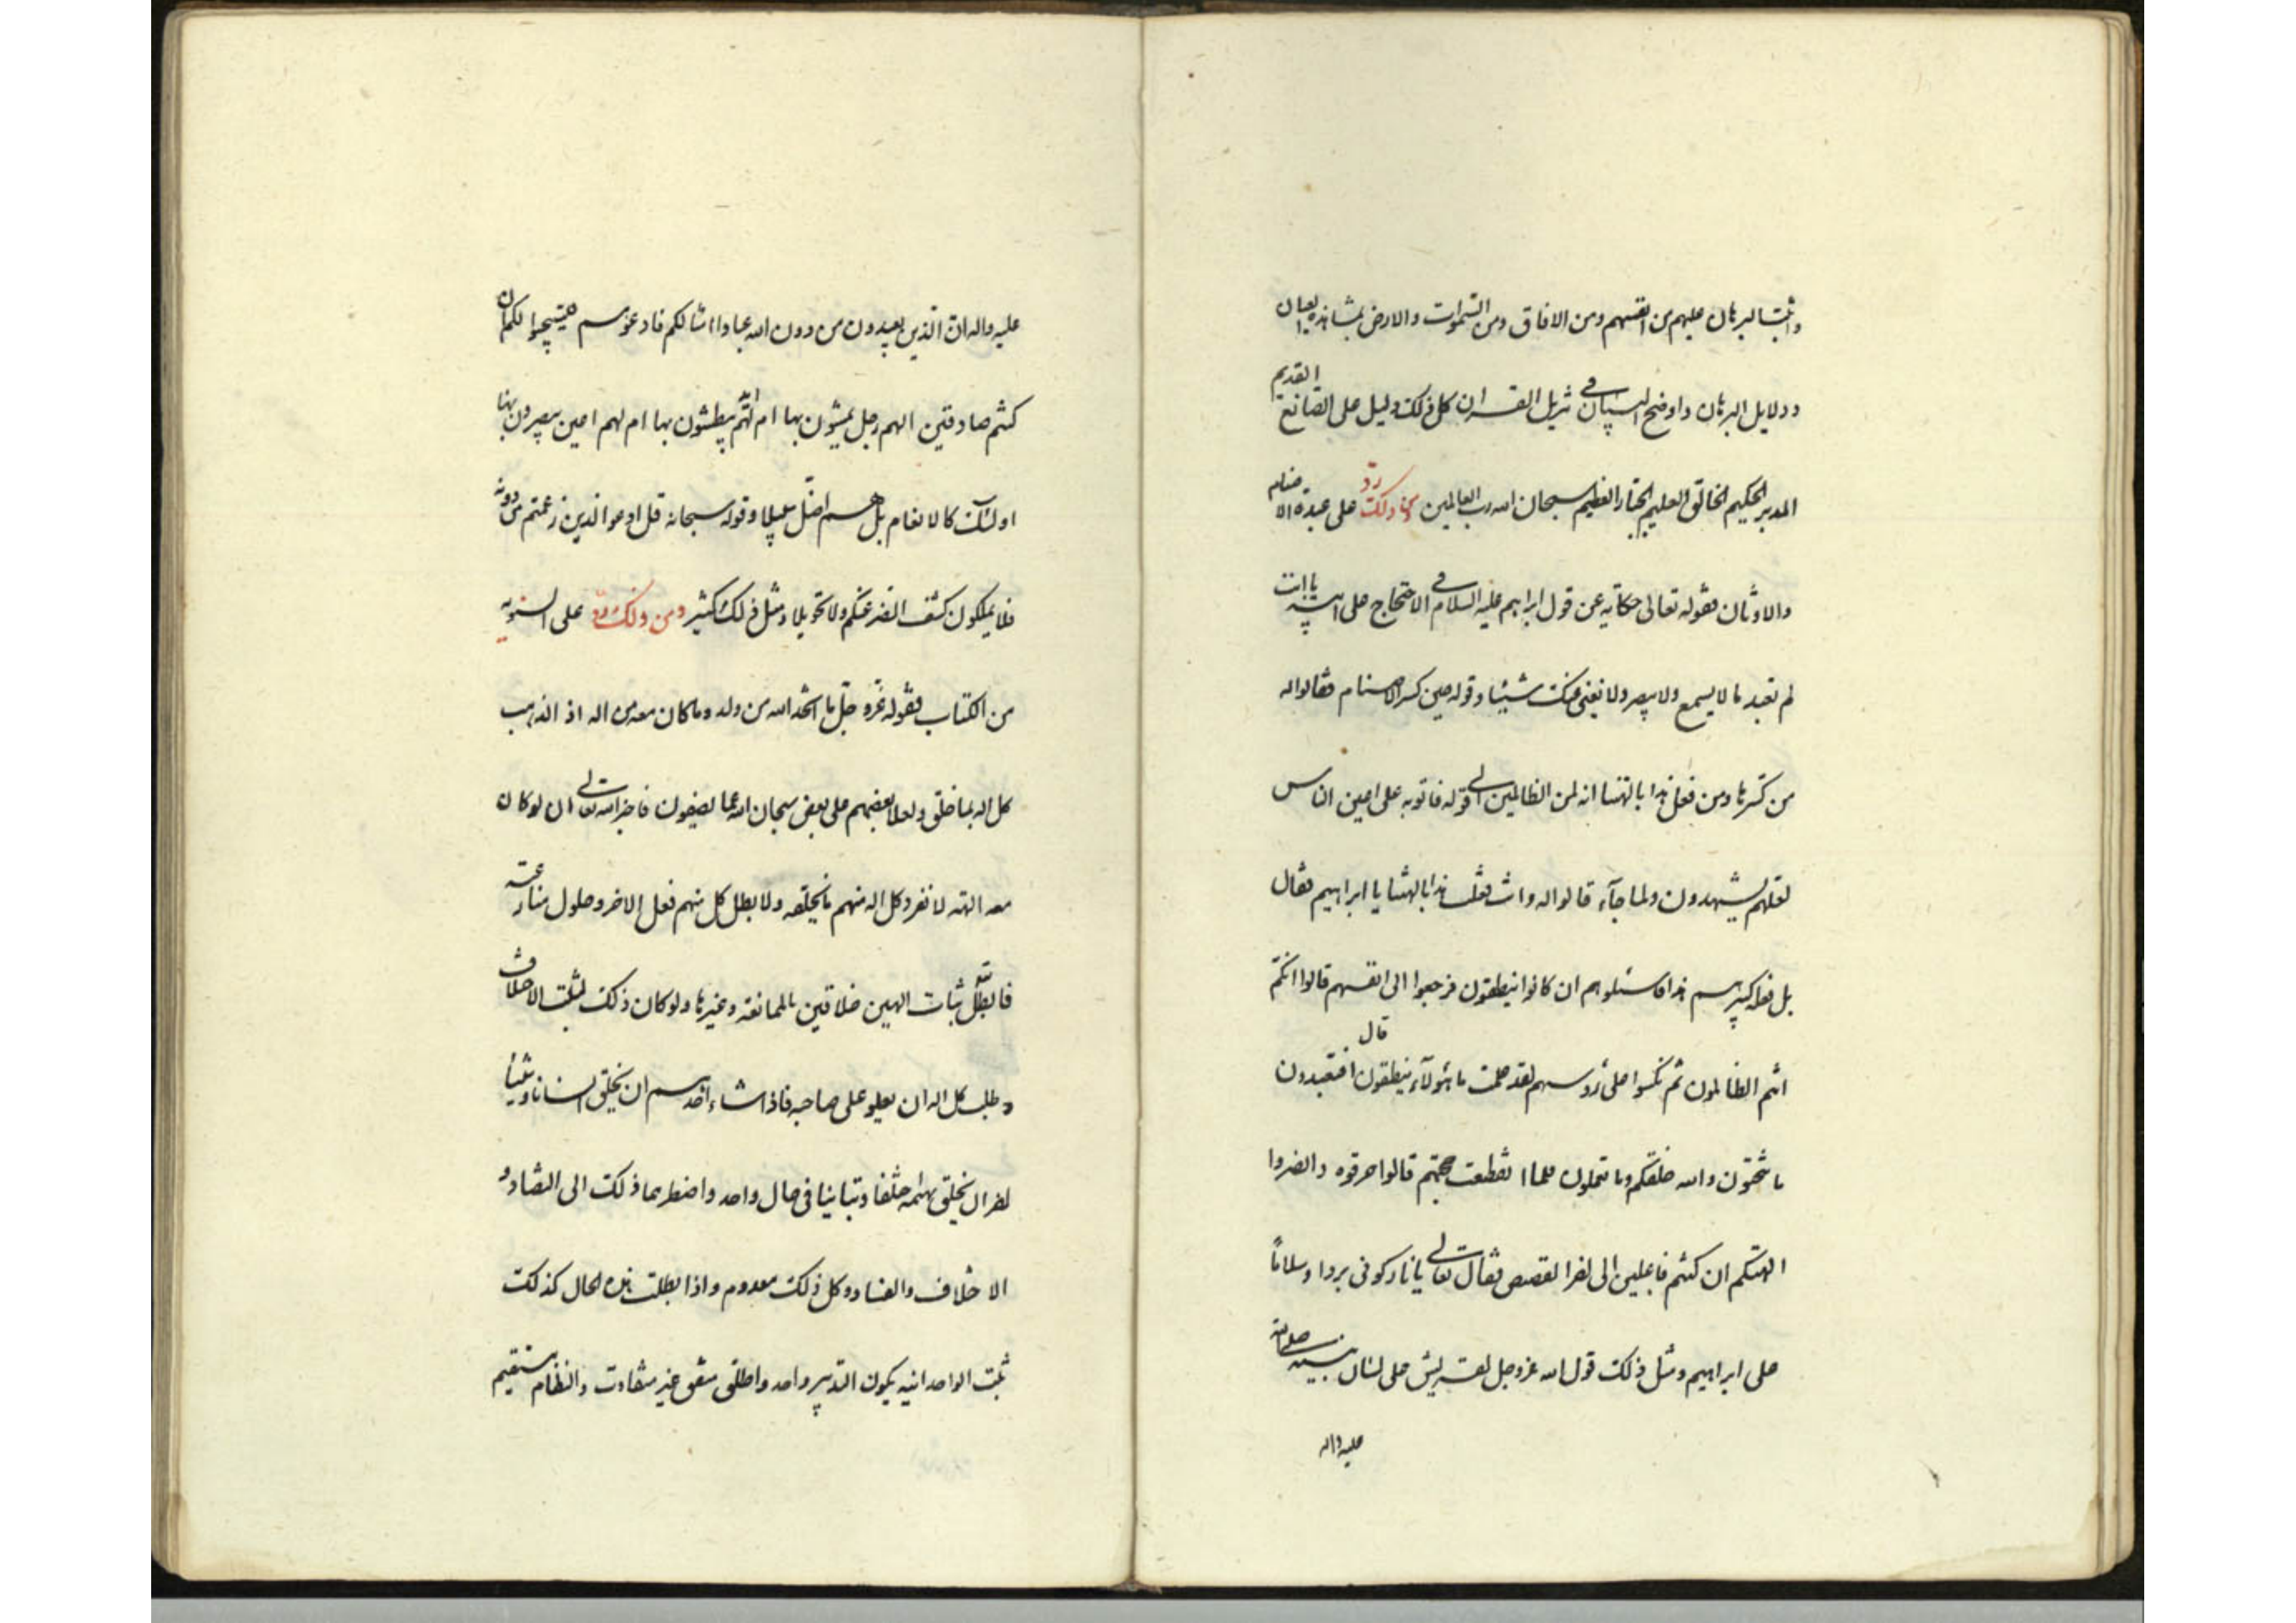 واثبت البرهان عليهم من انفسهم ومن الافاق ومن السموات والارض بمشاهدة العيان
ودلايل البرهان واوضح البيان في تنزيل القران كل ذلك دليل على الصانع القديم
المدبر الحكيم الخالق العليم الجبار العظيم سبحان الله رب العالمين رد على عبدة الاصنام
والاوثان فقوله تعالى حكاية عن قول ابراهيم عليه السلام في الاحتجاج على ابيه يا ابت
لم تعبد ما لا يسمع ولا يبصر ولا يغنى عنك شيئا وقوله حين كسر الاصنام فقالوا له
من كسرها ومن فعل هذا بالهتنا انه لمن الظالمين الى قوله فاتوا به على اعين الناس
لعلهم يشهدون ولما جآء قالوا له وانت فعلت هذا بالهتنا يا ابراهيم فقال
بل فعله كبيرهم هذا فاسئلوهم ان كانوا ينطقون فرجعوا الى انفسهم قالوا انكم
انتم الظالمون ثم نكسوا على رؤسهم لقد علمت ما هؤلآء ينطقون قال افتعبدون
ما تنحتون والله خلقكم وما تعملون فلما انقطعت حجتهم قالوا حرقوه وانصروا
الهتكم ان كنتم فاعلين الى اخر القصص فقال تعالى يا نار كونى بردا وسلاماً
على ابراهيم ومثل ذلك قول الله عزوجل لقريش على لسان نبيه صلى الله
عليه واله
عليه واله ان الذين يعبدون من دون الله عبادا امثالكم فادعوهم فليستجيبوا لكم ان
كنتم صادقين الهم رجل يمشون بها ام لهم ايد يبطشون بها ام لهم اعين يبصرون بها
اولئك كالانعام بل هم اضل سبيلا وقوله سبحانه قل ادعوا الذين زعمتم من دونه
فلا يملكون كشف الضر عنكم ولا تحويلا ومثل ذلك كثير ومن ذلك رد على الثنويه
من الكتاب فقوله عز وجل ما اتخذ الله من ولد وما كان معه من اله اذ الذهب
كل اله بما خلق ولعلا بعضهم على بعض سبحان الله عما يصفون فاخبر الله تعالى ان لو كان
معه الهة لانفرد كل اله منهم بخلقه ولابطل كل منهم فعل الاخر وحاول منازعته
فابطل تعالى اثبات الهين خلاقين بالممانعة وغيرها ولو كان ذلك لثبت الاختلاف
وطلب كل اله ان يعلو على صاحبه فاذا شاء احدهم ان يخلق انسانا وشيئا
الاخر ان يخلق بهيمة اختلفا وتباينا في حال واحد واضطرهما ذلك الى التضاد و
الاختلاف والفساد وكل ذلك معدوم واذا بطلت هذه الحال كذلك
ثبت الوحدانيه بكون التدبير واحد والخلق متفق غير متفاوت والنظام مستقيم